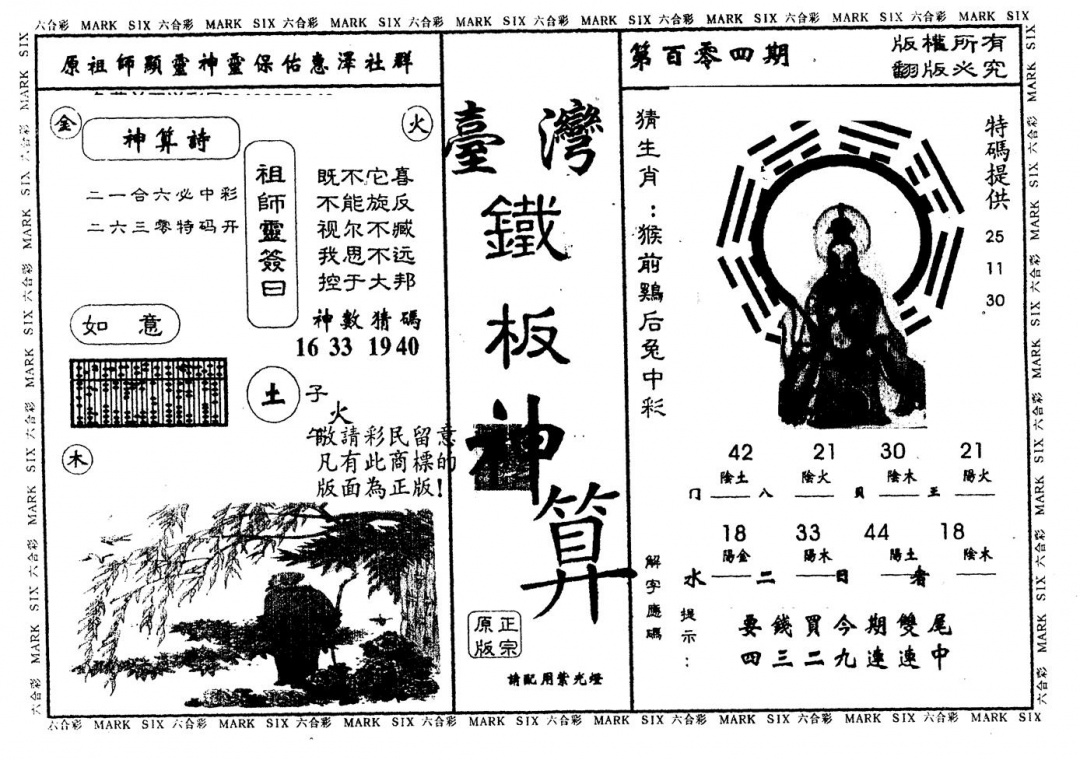 六合彩 MARK SIX 六合彩 MARK SIX 六合彩 MARK SIX 六合彩 MARK SIX 六合彩 MARK SIX 六合彩 MARK SIX 六合彩 MARK SIX 六合彩 MARK SIX
原祖師顯靈神靈保佑惠澤社群
金
火
神算詩
二一合六必中彩
二六三零特码开
祖師靈簽曰
既不它喜
不能旋反
视尔不臧
我思不远
控于大邦
神數猜碼
16 33 19 40
如意
土
子
火
木
敬請彩民留意
凡有此商標的
版面為正版！
臺灣
鐵
板
神
算
正宗
原版
請配用紫光燈
第百零四期
版權所有
翻版必究
猜生肖：猴前鷄后兔中彩
特碼提供
25
11
30
42 21 30 21
陰土 陰火 陰木 陽火
门 八 貝 王
18 33 44 18
陽金 陽木 陽土 陰木
水 二 日 者
解字應碼
提示：
要錢買今期雙尾
四三二九連連中
六合彩 MARK SIX 六合彩 MARK SIX 六合彩 MARK SIX 六合彩 MARK SIX 六合彩 MARK SIX 六合彩 MARK SIX 六合彩 MARK SIX 六合彩 MARK SIX